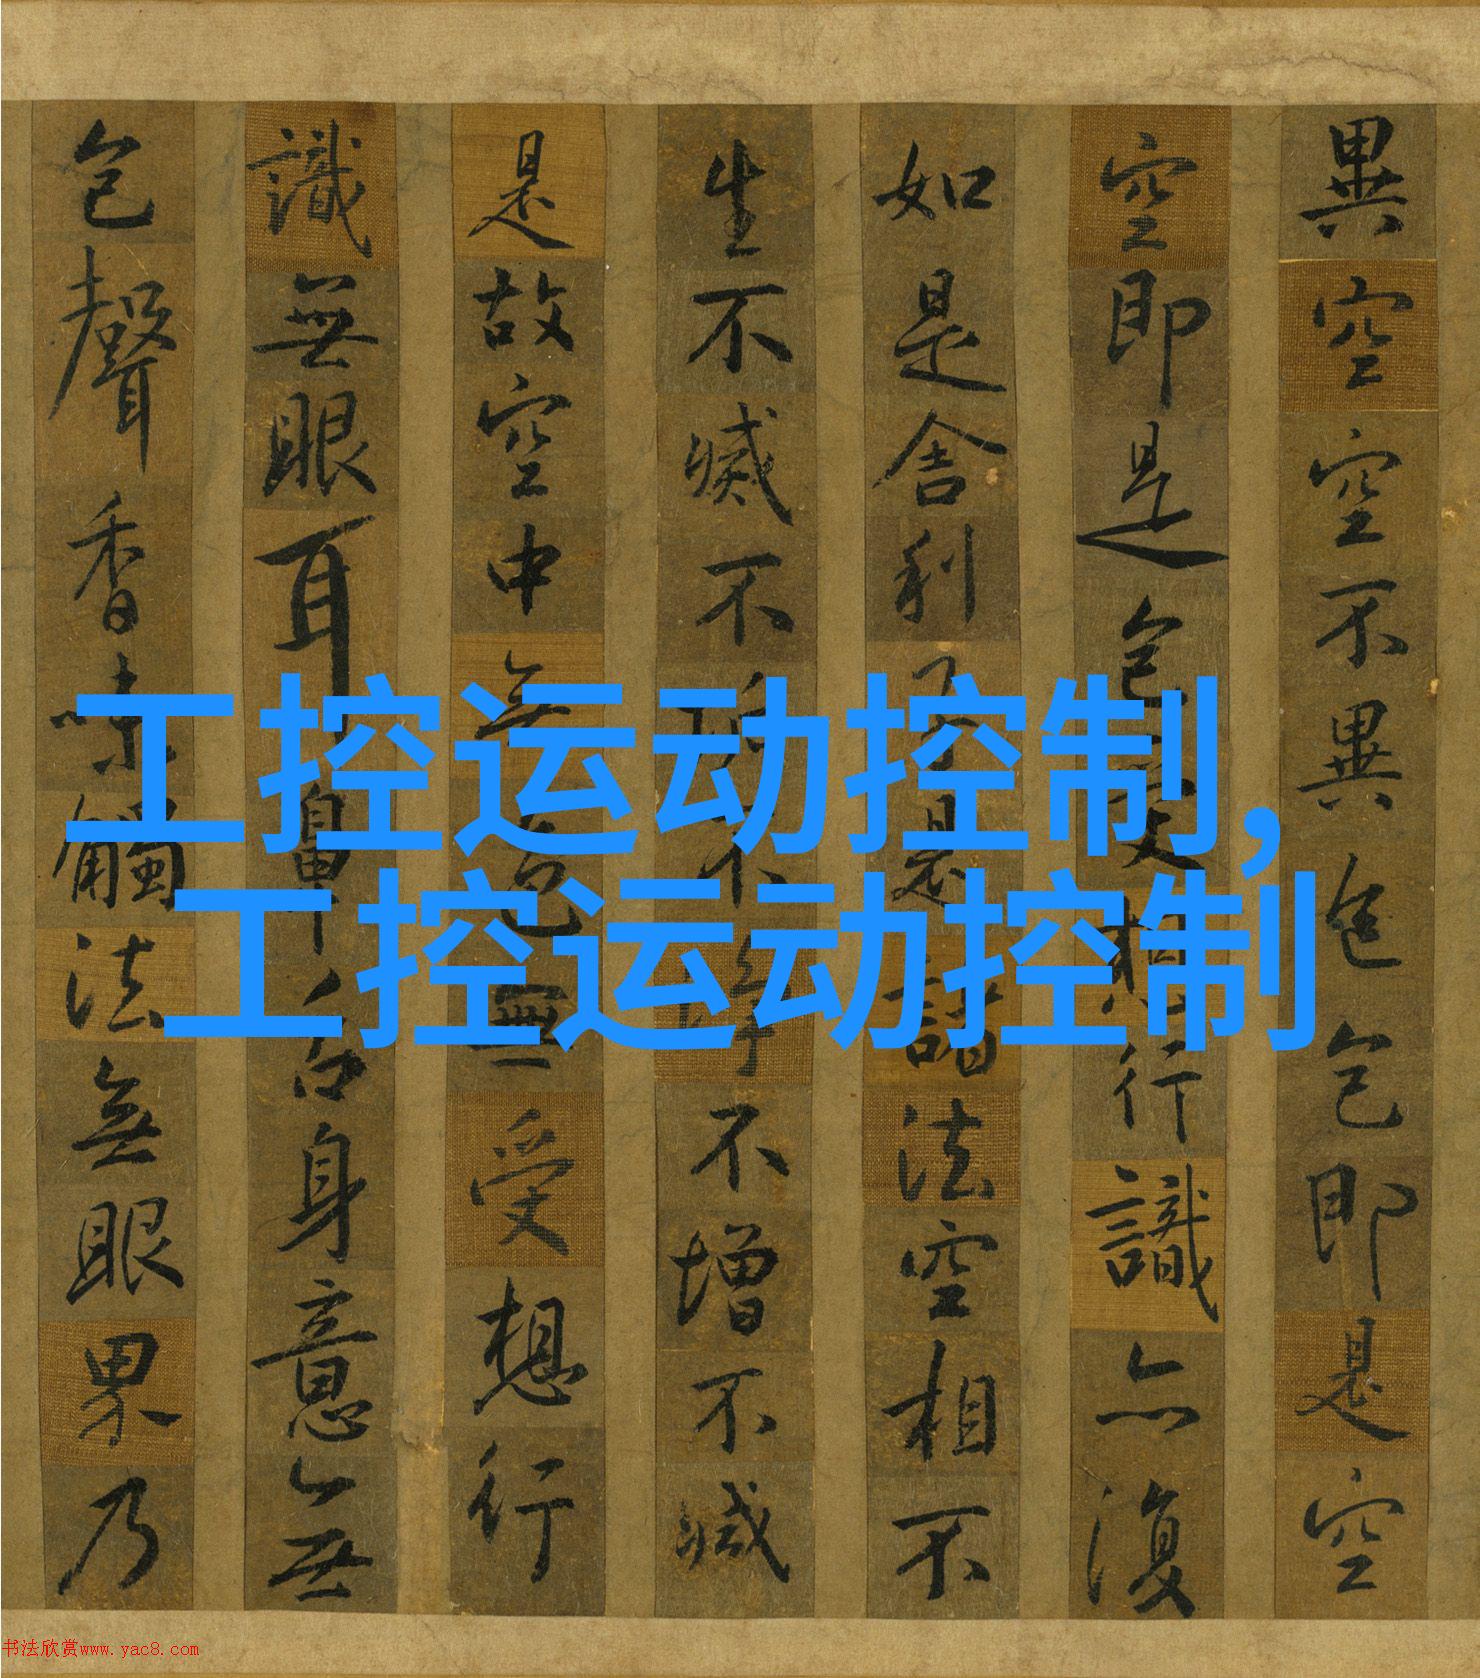 異空空不異色色即是空
空即是色受想行識亦復
如是舍利子是諸法空相不
生不滅不垢不淨不增不減
是故空中無色無受想行
識無眼耳鼻舌身意無
色聲香味觸法無眼界乃
工控运动控制,
工控运动控制
书法欣赏www.yac8.com